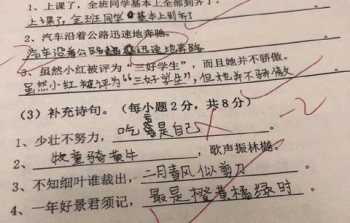 1、上课了，全班同学基本上全部到齐了。
上课了，全班同学基本上到齐了
2、汽车沿着公路迅速地奔驰。
汽车沿着公路迅速地奔驰
3、虽然小红被评为“三好学生”，而且她并不骄傲。
虽然小红被评为“三好学生”，但她并不骄傲
（3）补充诗句。（每小题2分，共8分）
-2
1、少壮不努力，吃亏是自己。
2、牧童骑黄牛，歌声振林樾。
3、不知细叶谁裁出，二月春风似剪刀。
4、一年好景君须记，最是橙黄橘绿时。